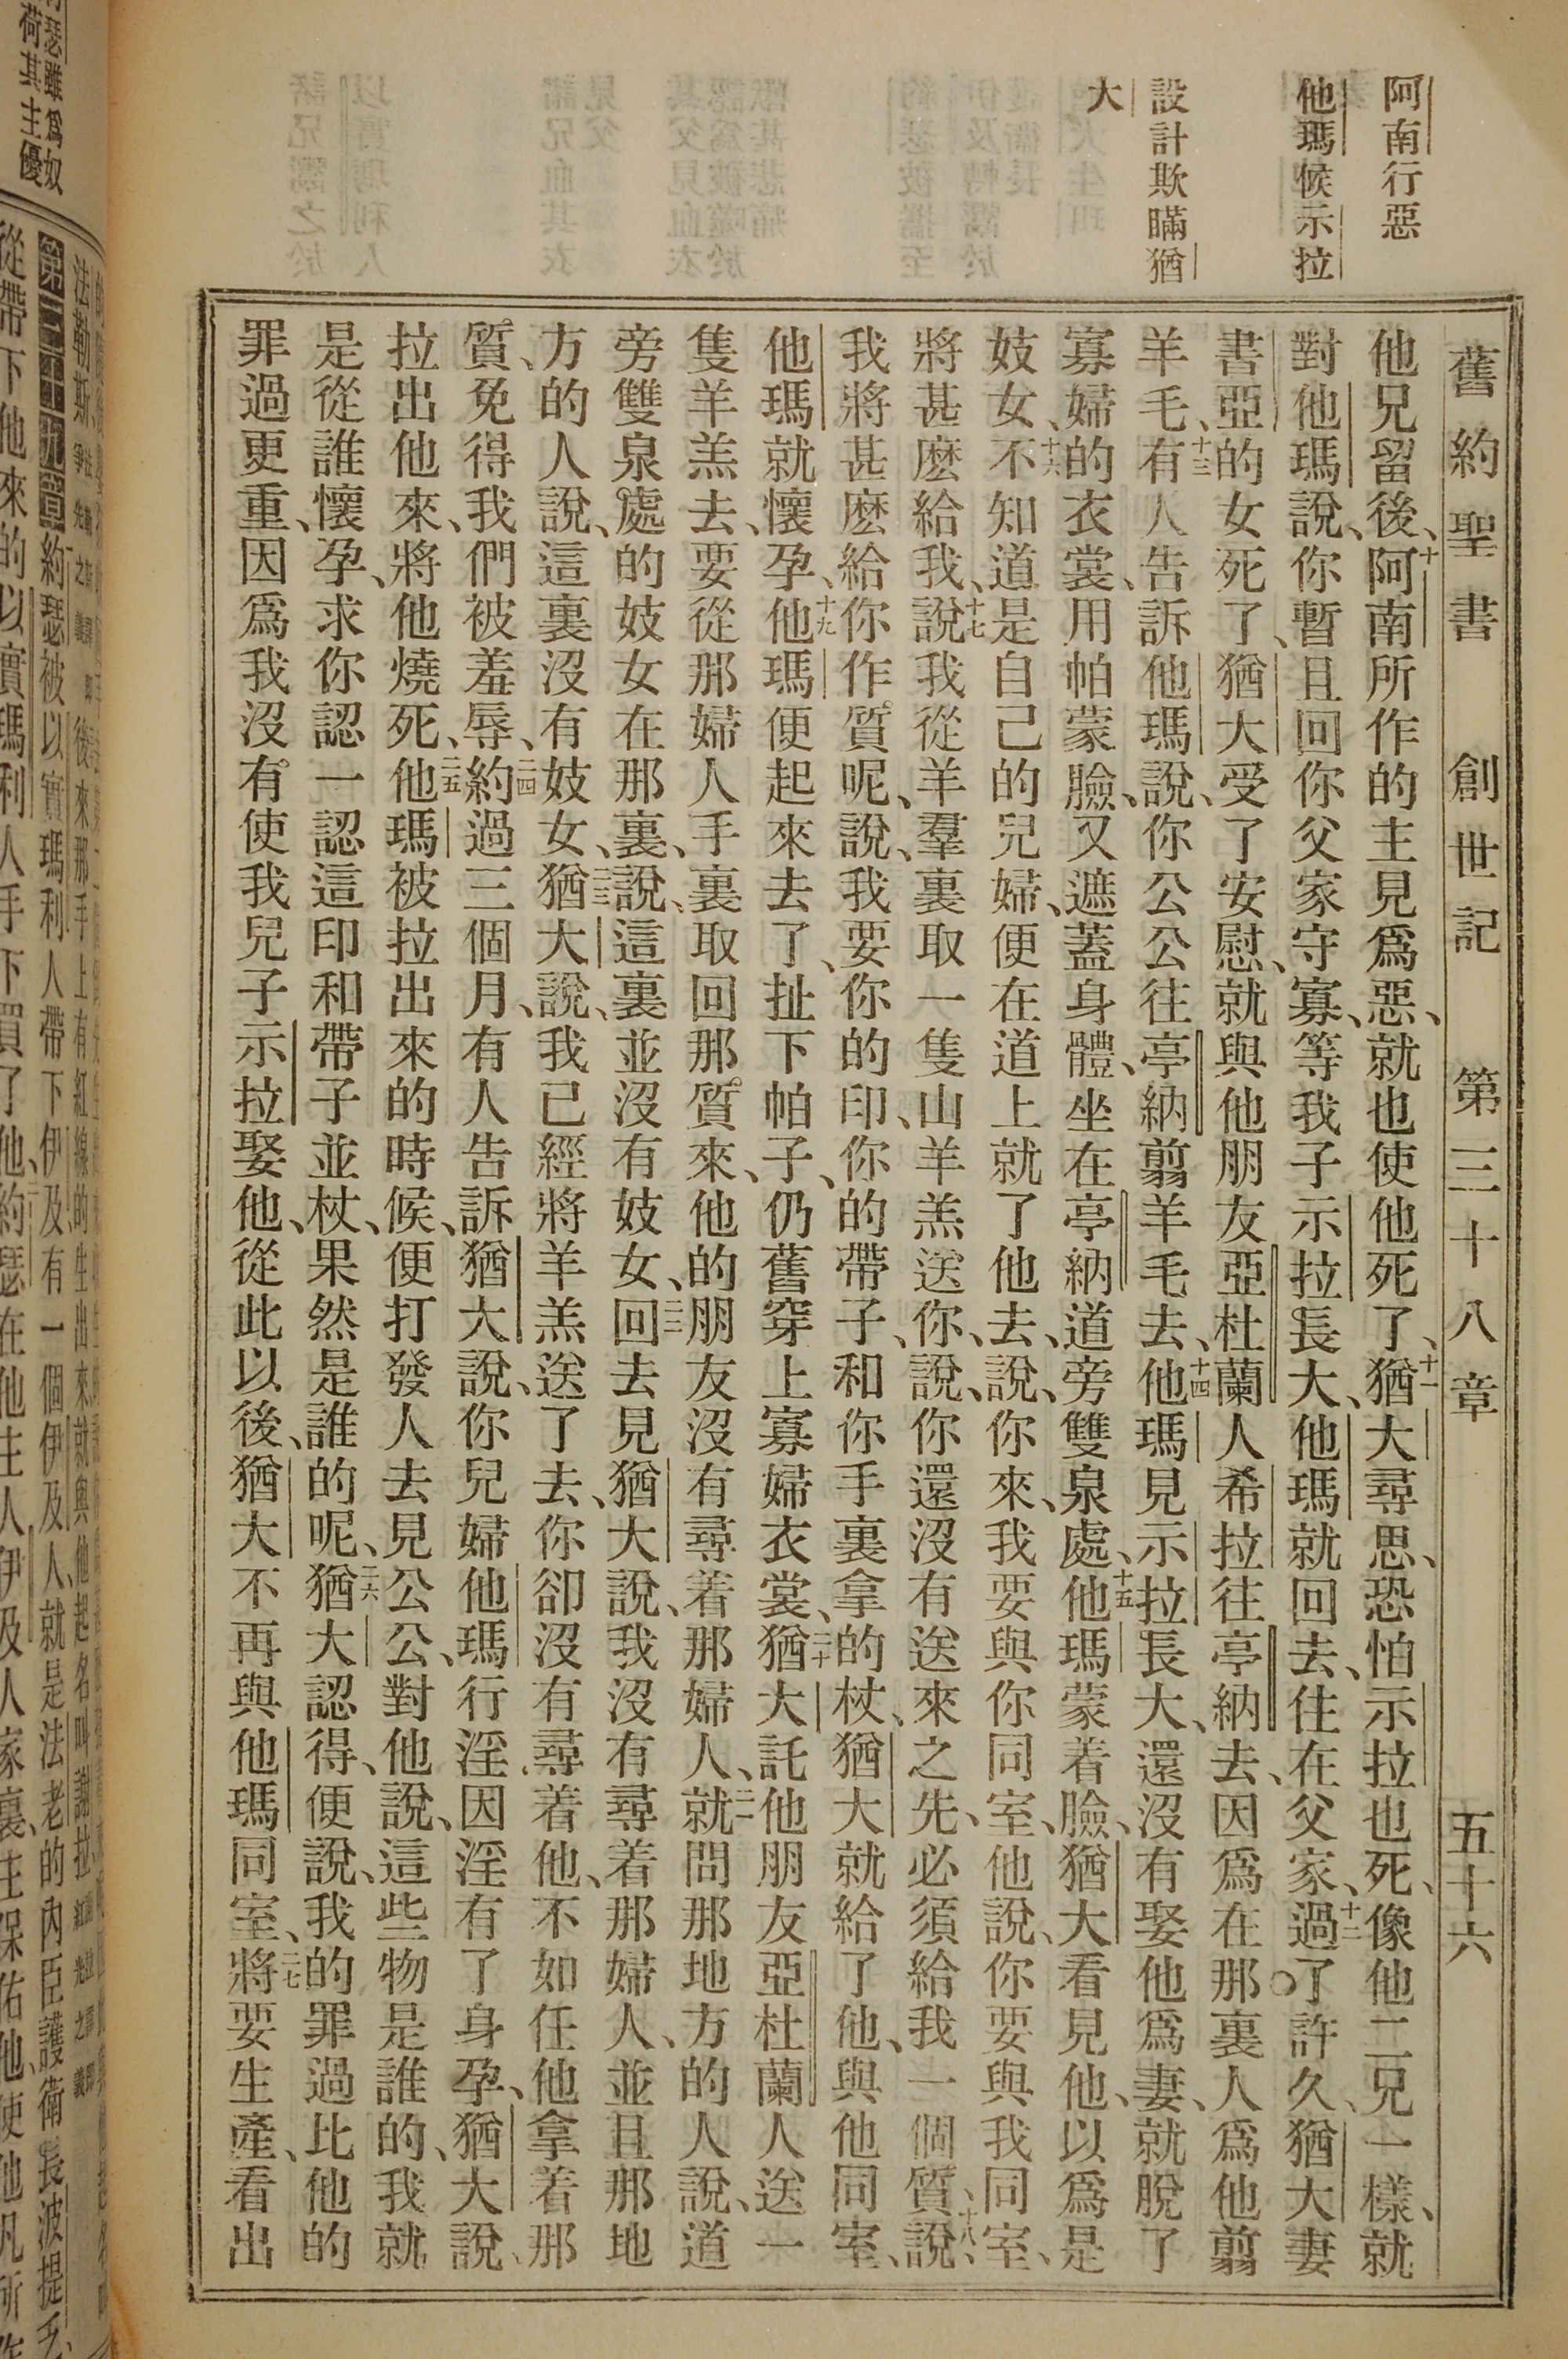 阿南行惡
他瑪候示拉
設計欺瞞猶
大
舊約聖書 創世記 第三十八章 五十六
他兄留後、十阿南所作的主見爲惡、就也使他死了、十一猶大尋思、恐怕示拉也死、像他二兄一樣、就
對他瑪說、你暫且回你父家守寡、等我子示拉長大、他瑪就回去、住在父家、十二過了許久、猶大妻
書亞的女死了、猶大受了安慰、就與他朋友亞杜蘭人希拉往亭納去、因爲在那裏人爲他翦
羊毛、十三有人告訴他瑪說、你公公往亭納翦羊毛去、十四他瑪見示拉長大、還沒有娶他爲妻、就脫了
寡婦的衣裳、用帕蒙臉、又遮蓋身體、坐在亭納道旁雙泉處、十五他瑪蒙着臉、猶大看見他、以爲是
妓女、十六不知道是自己的兒婦、便在道上就了他去、說、你來、我要與你同室、他說、你要與我同室、
將甚麽給我、十七說我從羊羣裏取一隻山羊羔送你、說、你還沒有送來之先、必須給我一個質、十八說、
我將甚麽給你作質呢、說、我要你的印、你的帶子、和你手裏拿的杖、猶大就給了他、與他同室、
他瑪就懷孕、十九他瑪便起來去了、扯下帕子、仍舊穿上寡婦衣裳、二十猶大託他朋友亞杜蘭人送一
隻羊羔去、要從那婦人手裏取回那質來、他的朋友沒有尋着那婦人、二一就問那地方的人說、道
旁雙泉處的妓女在那裏、說、這裏並沒有妓女、二二回去見猶大說、我沒有尋着那婦人、並且那地
方的人說、這裏沒有妓女、二三猶大說、我已經將羊羔送了去、你卻沒有尋着他、不如任他拿着那
質、免得我們被羞辱、二四約過三個月、有人告訴猶大說、你兒婦他瑪行淫、因淫有了身孕、猶大說、
拉出他來、將他燒死、二五他瑪被拉出來的時候、便打發人去見公公、對他說、這些物是誰的、我就
是從誰懷孕、求你認一認這印和帶子並杖、果然是誰的呢、二六猶大認得、便說、我的罪過比他的
罪過更重、因爲我沒有使我兒子示拉娶他、從此以後、猶大不再與他瑪同室、二七將要生產、看出